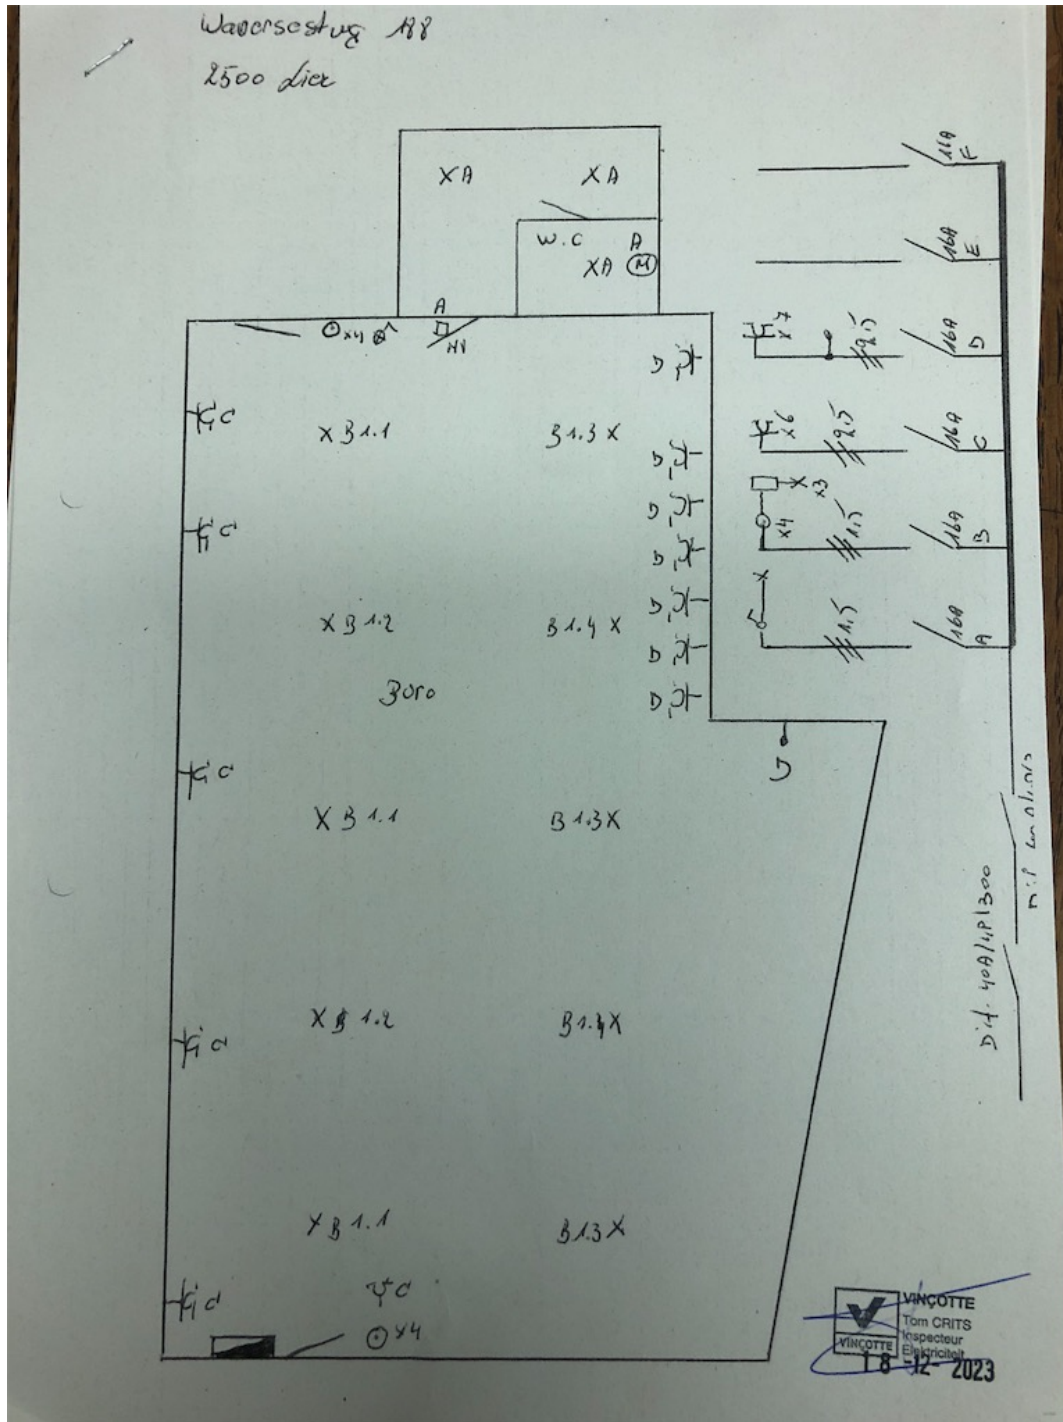 188
2500 Lier
XA XA
W.C A
XA M
A
x4
D
C
XB1.1 B1.3X
D
D
C
D
D
XB1.2 B1.4X
D
Buro
D
D
C
XB1.1 B1.3X
C
XB1.2 B1.4X
XB1.1 B1.3X
C
C
x4
16A
F
16A
E
x7
2,5
16A
D
x6
2,5
16A
C
x3
x4
1,5
16A
B
1,5
16A
A
Dif. 40A/4P/300
VINÇOTTE
Tom CRITS
Inspecteur
Elektriciteit
VINÇOTTE
18 -12- 2023